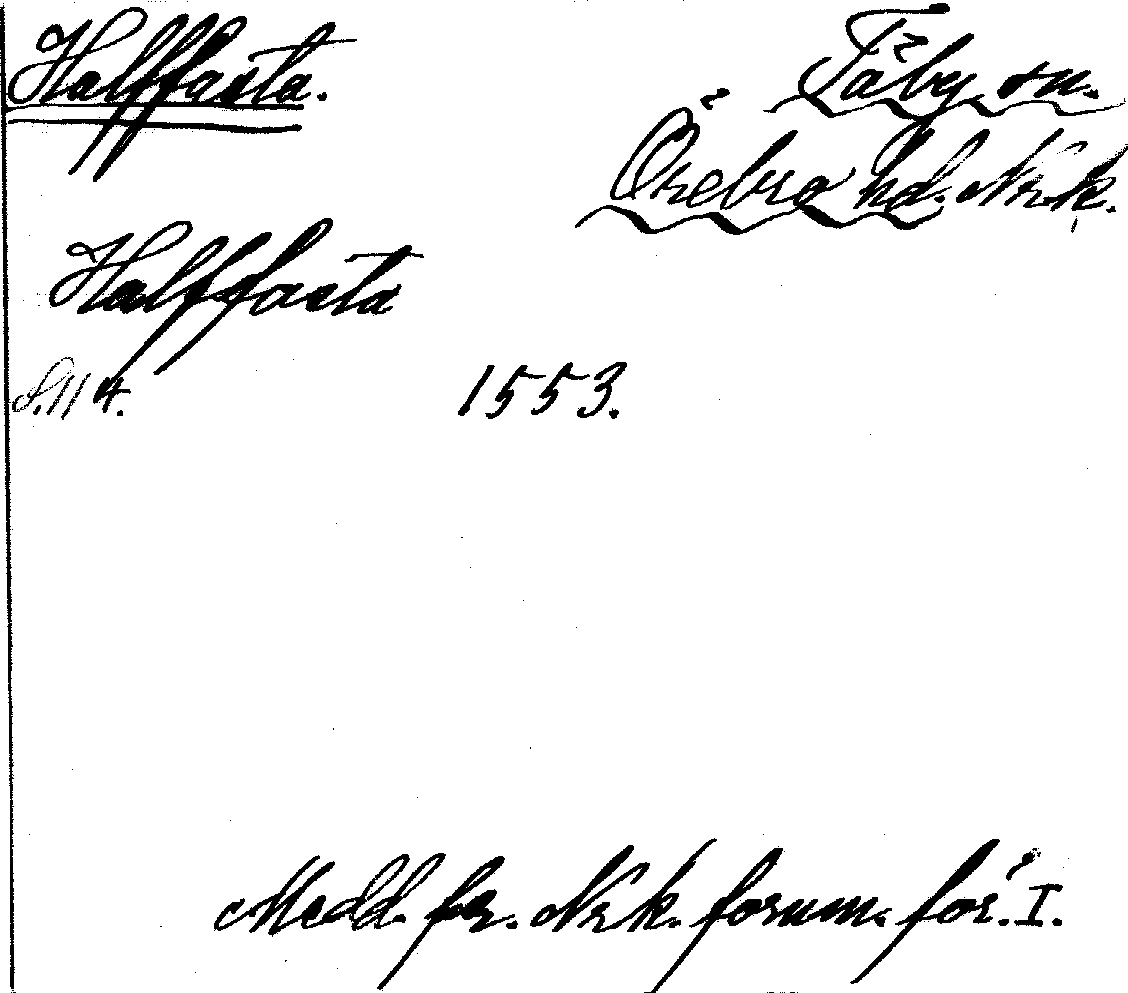 Halffasta.
Täby sn.
Örebro hd. Nrk.
Halffasta
S. 114.
1553.
Medd. fr. Nrk. fornm. för. I.